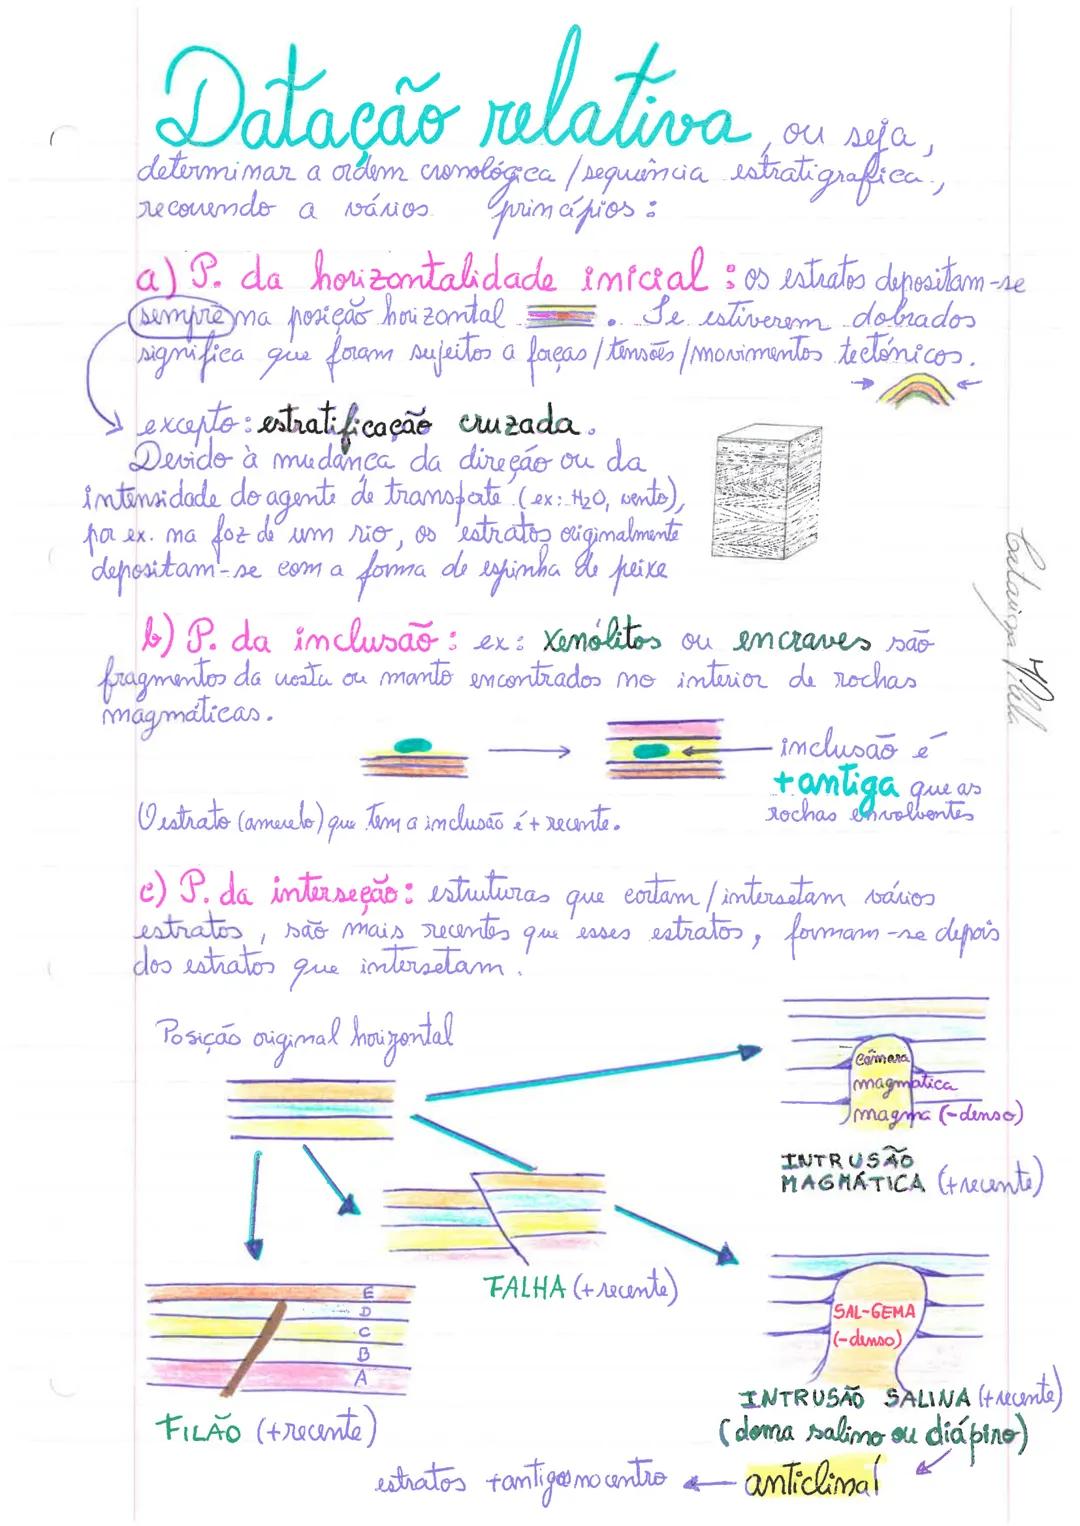 Datação relativa, ou seja,
determinar a ordem cronológica/sequência estratigrafica,
recorrendo a vários princípios:
a) P. da horizontalidade inicial: os estratos depositam-se
sempre na posição horizontal. Se estiverem dobrados
significa que foram sujeitos a forças/tensões/movimentos tectónicos.
excepto: estratificação cruzada.
Devido à mudança da direção ou da
intensidade do agente de transporte (ex: H2O, vento),
por ex. na foz de um rio, os estratos originalmente
depositam-se com a forma de espinha de peixe
b) P. da inclusão: ex: Xenólitos ou encraves são
fragmentos da crosta ou manto encontrados no interior de rochas
magmáticas.
inclusão é
+antiga que as
rochas envolventes
O estrato (amarelo) que tem a inclusão é + recente.
c) P. da interseção: estruturas que cortam/intersetam vários
estratos, são mais recentes que esses estratos, formam-se depois
dos estratos que intersetam.
Posição original horizontal
câmara
magmática
magma (-denso)
INTRUSÃO
MAGMÁTICA (+recente)
FALHA (+recente)
E
D
C
B
A
FILÃO (+recente)
SAL-GEMA
(-denso)
INTRUSÃO SALINA (+recente)
(doma salino ou diápiro)
estratos +antigos no centro ← anticlinal